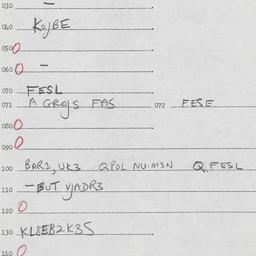 030 —
040 KOJBE
050
060 —
070 FESL
071 A GROJS FAS 072 FESE
080
090
100 BAR1, UK3 QPOL NU.M3N Q FESL
110 —BUT VJADR3
120
130 KL8EB2K35
140